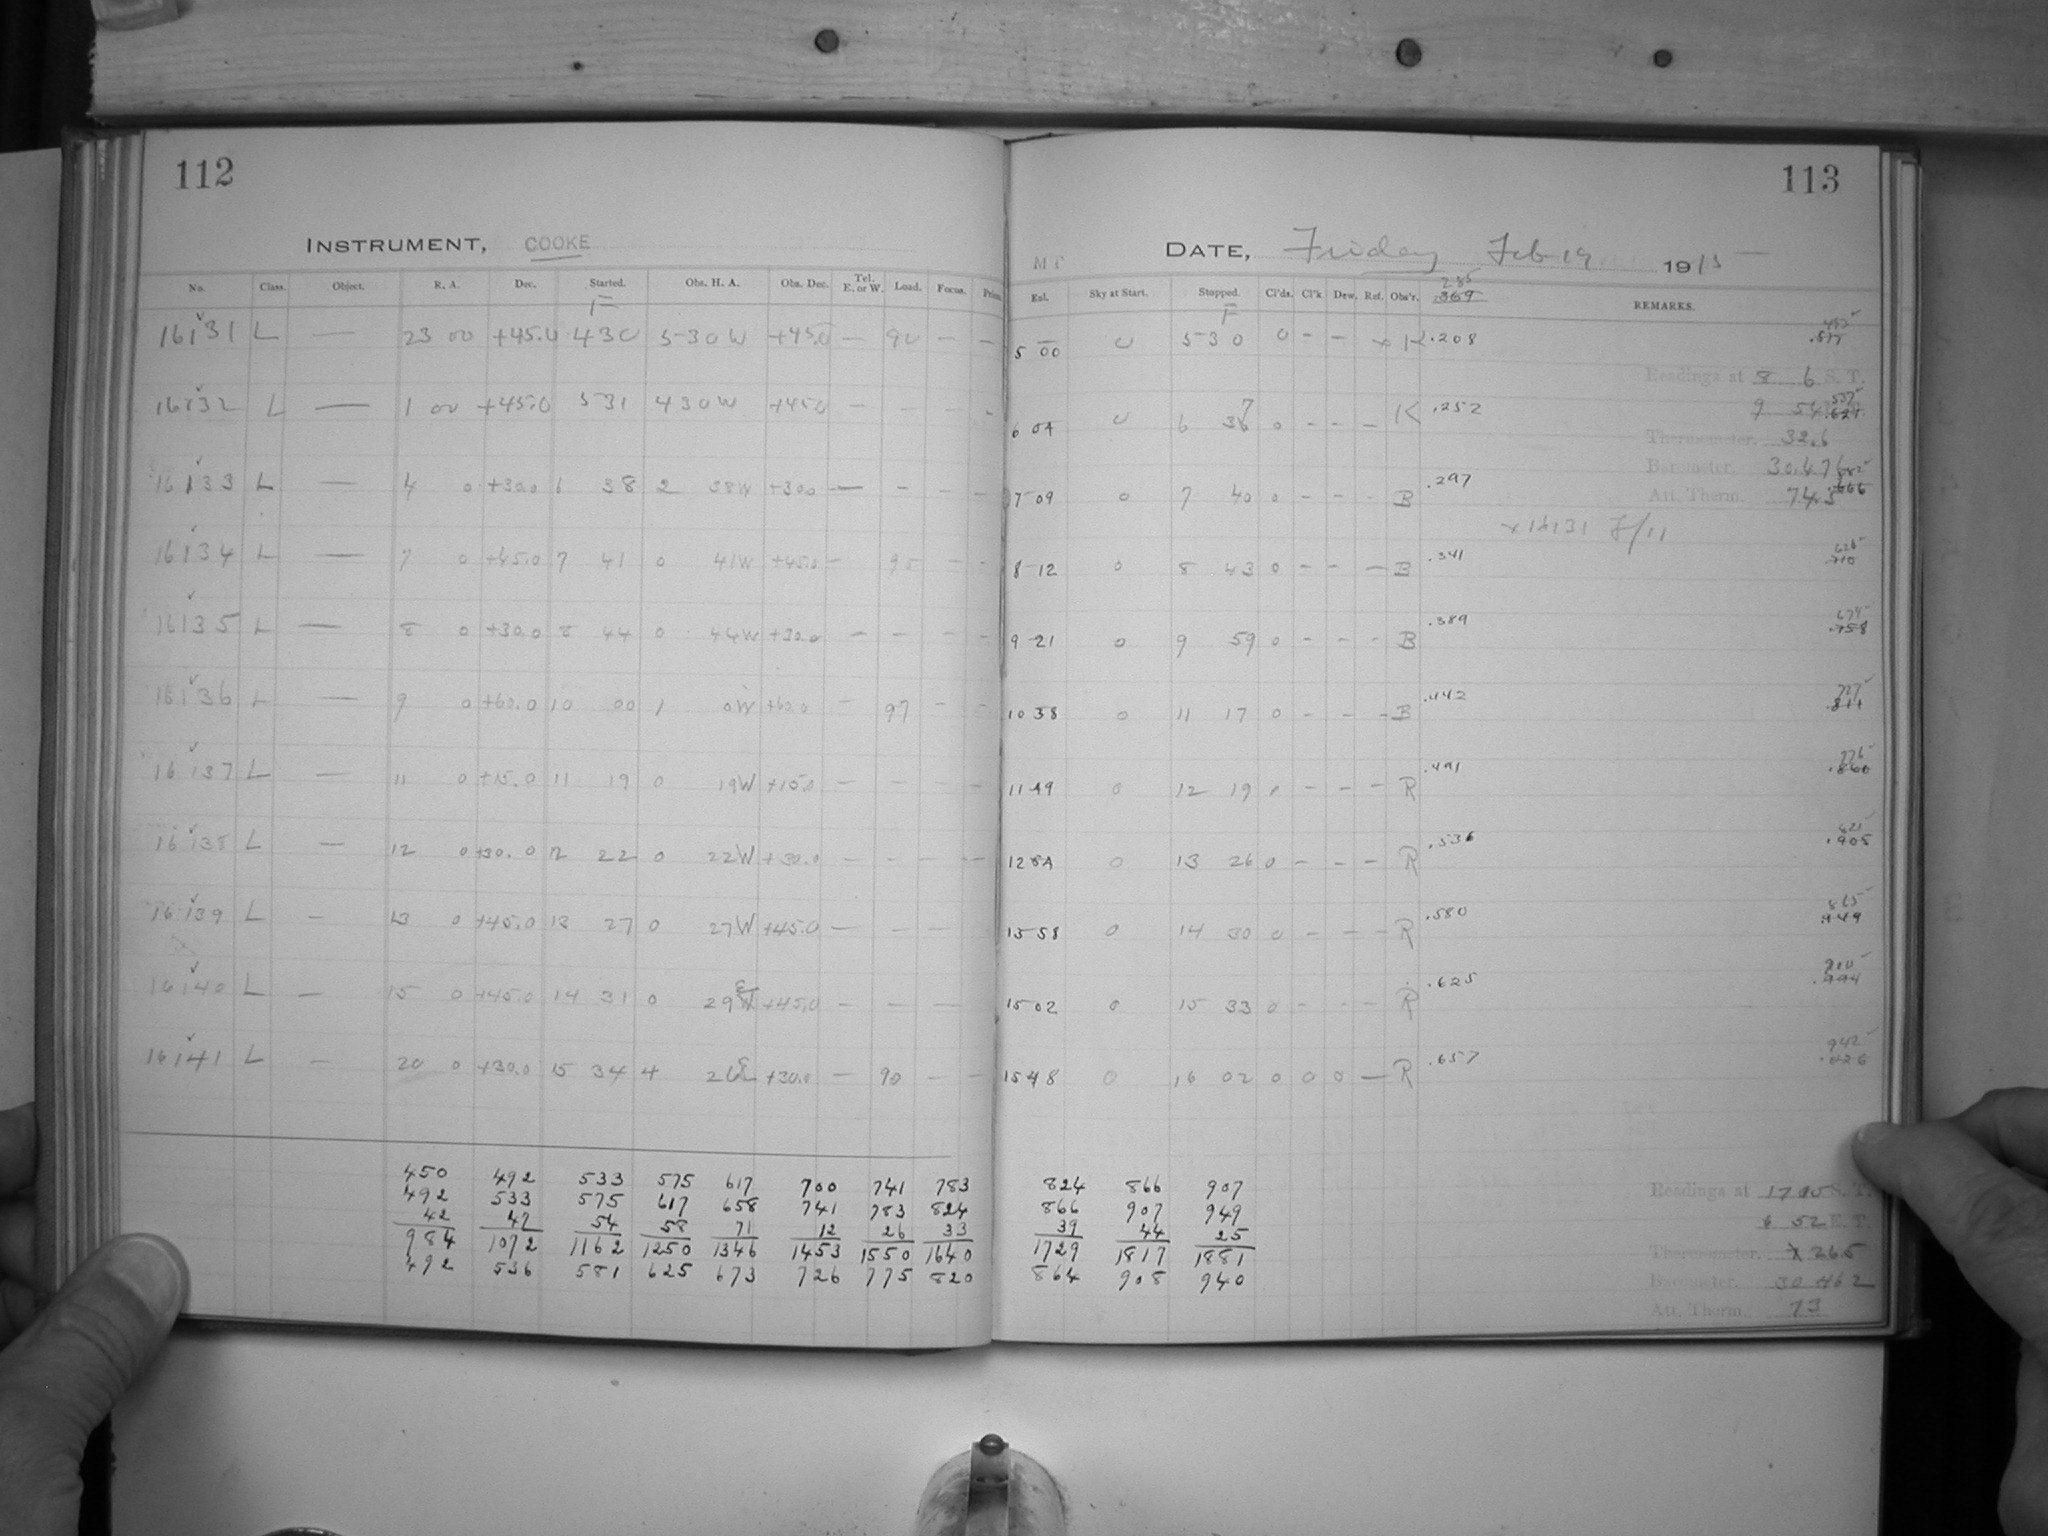 112
INSTRUMENT, COOKE
No. Class. Object. R. A. Dec. Started. Obs. H. A. Obs. Dec. Tel. E. or W. Load. Focus.
F
16131 L — 23 00 +45.0 430 5-30W +45.0 — 90 — —
16132 L — 1 00 +45.0 531 430W +45.0 — — — —
16133 L — 4 0 +30.0 6 38 2 38W +30.0 — — — —
16134 L — 7 0 +45.0 7 41 0 41W +45.0 — 95 — —
16135 L — 8 0 +30.0 8 44 0 44W +30.0 — — — —
16136 L — 9 0 +60.0 10 00 1 0W +60.0 — 97 — —
16137 L — 11 0 +15.0 11 19 0 19W +15.0 — — — —
16138 L — 12 0 +30.0 12 22 0 22W +30.0 — — — —
16139 L — 13 0 +45.0 13 27 0 27W +45.0 — — —
16140 L — 15 0 +45.0 14 31 0 29E +45.0 — — —
16141 L — 20 0 +30.0 15 34 4 26E +30.0 — 90 — —
450 492 533 575 617 700 741 783
492 533 575 617 658 741 783 824
42 47 54 58 71 12 26 33
984 1072 1162 1250 1346 1453 1550 1640
492 536 581 625 673 726 775 820
113
DATE, Friday Feb 19 1915
Exl. Sky at Start. Stopped. Cl'ds. Cl'k Dew. Ref. Obs'r. 285 369 REMARKS.
F
5 00 0 5-30 0 — — x K .208
Readings at 8 6 S. T.
6 04 0 6 37 0 — — — K .252
9 54
537
Thermometer. 32.6
Barometer. 30.476
7 09 0 7 40 0 - - - B .297
Att. Therm. 74.5
x16131 F/11
8 12 0 8 43 0 - - — B .341
9 21 0 9 59 0 - - - B .389
674
.758
10 38 0 11 17 0 - - - B .442
727
.811
11 49 0 12 19 0 - - - R .491
776
.860
12 54 0 13 26 0 - - - R .536
821
.905
13 58 0 14 30 0 - - - R .580
865
.949
15 02 0 15 33 0 - - - R .625
910
.994
15 48 0 16 02 0 0 0 — R .657
942
.026
824 866 907
866 907 949
39 44 25
1729 1817 1881
864 908 940
Readings at S. T.
6 52 E. T.
Thermometer. 26.5
Barometer. 30 462
Att. Therm. 73